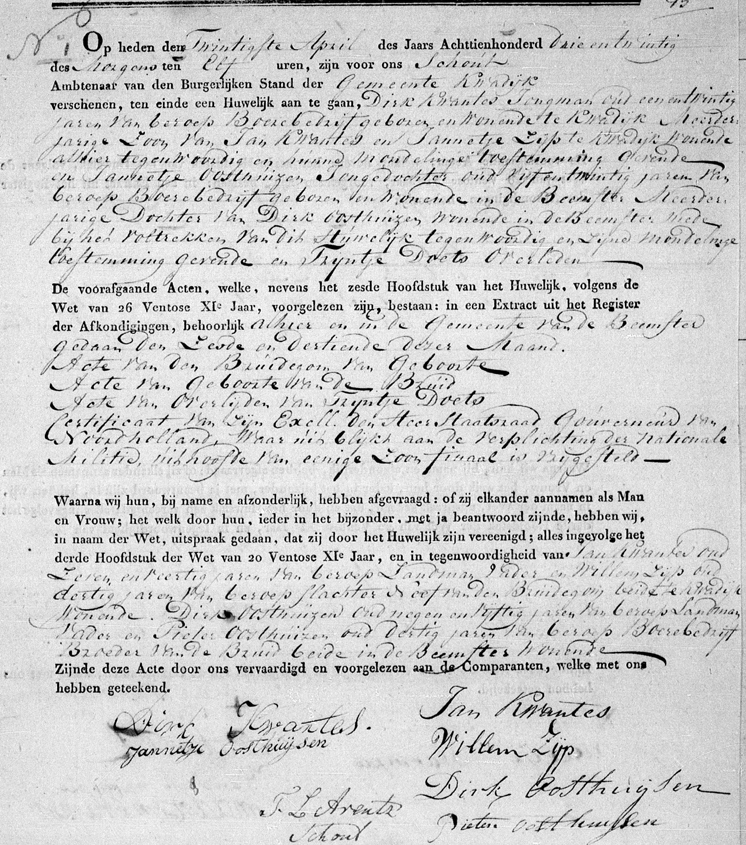 93
No 1
Op heden den Twintigste April des Jaars Achttienhonderd drie en twintig
des Morgens ten Elf uren, zijn voor ons Schout
Ambtenaar van den Burgerlijken Stand der Gemeente Kwadijk
verschenen, ten einde een Huwelijk aan te gaan, Dirk Kwantes Jongman oud een entwintig
jaren van beroep Boerebedrijf geboren en wonende te Kwadijk Meerder
jarige Zoon van Jan Kwantes en Jannetje Zijp te Kwadijk wonende
alhier tegenwoordig en hunne Mondelinge toestemming gevende
en Jannetje Oosthuizen Jongedochter oud vijf entwintig jaren van
beroep Boerebedrijf geboren en wonende in de Beemster Meerder
jarige Dochter van Dirk Oosthuizen wonende in de Beemster mede
bij het voltrekken van dit Huwelijk tegenwoordig en zijne mondelinge
toestemming gevende en Trijntje Doets Overleden
De voorafgaande Acten, welke, nevens het zesde Hoofdstuk van het Huwelijk, volgens de
Wet van 26 Ventose XIe Jaar, voorgelezen zijn, bestaan: in een Extract uit het Register
der Afkondigingen, behoorlijk alhier en in de Gemeente van de Beemster
gedaan den Zesde en dertiende dezer Maand.
Acte van den Bruidegom van Geboorte
Acte van Geboorte van de Bruid
Acte van Overlijden van Trijntje Doets
Certificaat van Zijn Excell. den Heer Staatsraad Gouverneur van
Noordholland, Waar uit blijkt aan de verplichting der nationale
Militie, uit hoofde van eenige Zoon finaal is vrijgesteld
Waarna wij hun, bij name en afzonderlijk, hebben afgevraagd: of zij elkander aannamen als Man
en Vrouw; het welk door hun, ieder in het bijzonder, met ja beantwoord zijnde, hebben wij,
in naam der Wet, uitspraak gedaan, dat zij door het Huwelijk zijn vereenigd; alles ingevolge het
derde Hoofdstuk der Wet van 20 Ventose XIe Jaar, en in tegenwoordigheid van Jan Kwantes oud
Zeven en veertig jaren van beroep Landman Vader en Willem Zijp oud
dertig jaren van beroep slachter Neef van den Bruidegom beide te Kwadijk
wonende. Dirk Oosthuizen oud negen en vijftig jaren van beroep Landman
Vader en Pieter Oosthuizen oud dertig jaren van beroep Boerebedrijf
Broeder van de Bruid beide in de Beemster wonende
Zijnde deze Acte door ons vervaardigd en voorgelezen aan de Comparanten, welke met ons
hebben geteekend.
Dirk Kwantes.
Jannetje Oosthuijsen
Jan Kwantes
Willem Zijp
Dirk Oosthuijsen
Pieter Oosthuijsen
Arentz
Schout